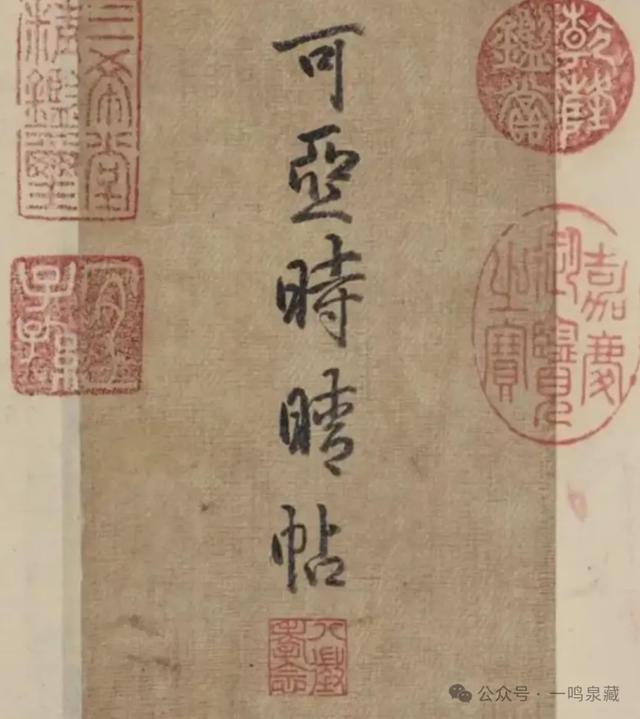 可亞時晴帖
乾隆鑑賞
嘉慶御覽之寶
三希堂精鑑璽
宜子孫
八徵耄念
公众号 · 一鸣泉藏